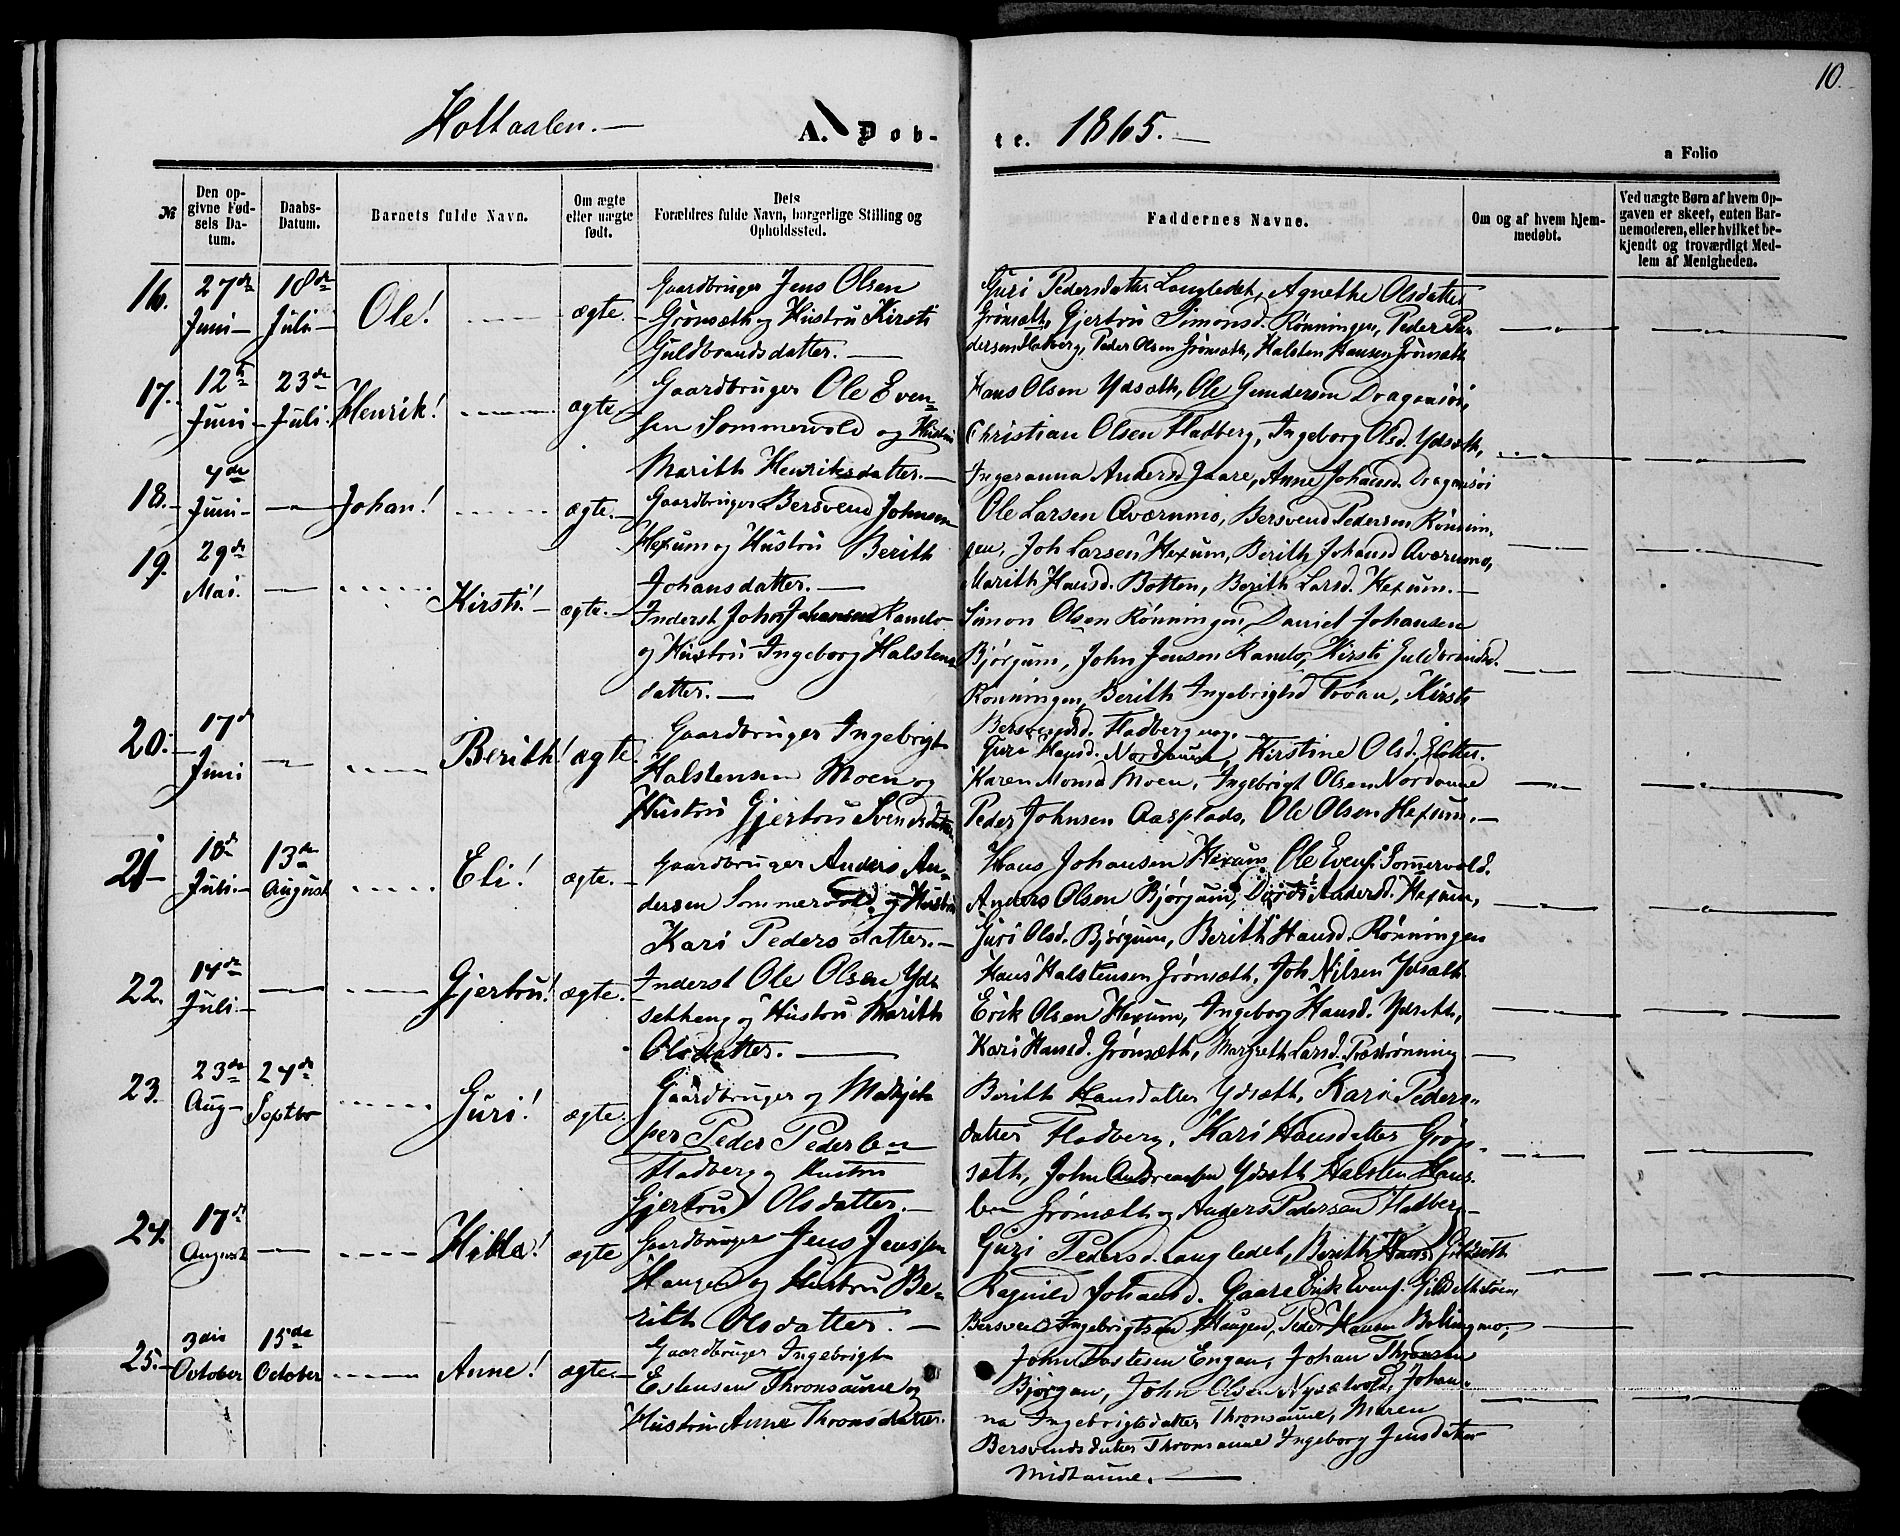 10.
Holtaalen.—
A. Døb-
te. 1865.—
a Folio
№
Den op-
givne Fød-
sels Da-
tum.
Daabs-
Datum.
Barnets fulde Navn.
Om ægte
eller uægte
født.
Dets
Forældres fulde Navn, borgerlige Stilling og
Opholdssted.
Faddernes Navne.
Om og af hvem hjem-
medøbt.
Ved uægte Børn af hvem Op-
gaven er skeet, enten Bar-
nemoderen, eller hvilket be-
kjendt og troværdigt Med-
lem af Menigheden.
16. 27de Juni— 18de Juli— Ole! ægte.
Gaardbruger Jens Olsen
Grönsæth og Hustru Kirsti
Guldbrandsdatter.—
Guri Pedersdatter Langledet, Agnethe Olsdatter
Grönsæth, Gjertru Simonsd. Rønningen, Peder Pe-
dersen Fladberg, Peder Olsen Grönsæth, Halsten Hansen Grönsæth
17. 12te Juni— 23de Juli. Henrik! ægte.
Gaardbruger Ole Even-
sen Sommervold og Hustru
Marith Henriksdatter.—
Hans Olsen Ydsæth, Ole Gundersen Dragaasöi,
Christian Olsen Fladberg, Ingeborg Olsd. Ydsæth,
Ingeranna Andersd Gaare, Anne Johansd. Dragaasöi
18.— 4de Juni— — Johan! ægte.—
Gaardbruger Bersvend Johnsen
Hexum og Hustru Berith
Johansdatter.—
Ole Larsen Aværumo, Bersvend Pedersen Rønnin-
gen, Joh Larsen Hexum, Berith Johansd Aværumo,
Marith Hansd. Botten, Berith Larsd. Hexum.—
19. 29de Mai. — Kirsti!— ægte.—
Inderst John Johansen Ramlo
og Hustru Ingeborg Halstens-
datter.—
Simon Olsen Rønningen, Daniel Johansen
Björgum, John Jensen Ramlo, Kirsti Guldbrandsd.
Rønningen, Berith Ingebrigtsd Troan, Kirsti
Bersvendsd. Fladberg
20.— 17d Juni — Berith! ægte.
Gaardbruger Ingebrigt
Halstensen Moen og
Hustru Gjertru Svendsdatter
Guri Hansd. Nordaune, Kirstine Olsd.
Karen Monsd Moen, Ingebrigt Olsen Nordaune
Peder Johnsen Aasplads, Ole Olsen Hexum.—
21— 18d Juli.— 13de August Eli! ægte.—
Gaardbruger Anders An-
dersen Sommervold og Hustru
Kari Pedersdatter.—
Hans Johansen Hexum, Ole Evens. Somervold.
Anders Olsen Björgum, Dordi Andersd. Hexum,
Guri Olsd. Björgum, Berith Hansd. Rønningen
22. 14de Juli.— — Gjertru! ægte.
Inderst Ole Olsen Yd-
setheng og Hustru Marith
Olsdatter.—
Hans Halstensen Grönsæth, Joh Nilsen Ydsæth
Erik Olsen Hexum, Ingeborg Hansd. Ydseth,
Kari Hansd. Grönsæth, Margreth Larsd. Præströnning—
23. 23de Aug— 24de Septbr Guri! ægte.
Gaardbruger og
Peder Pedersen
Fladberg og Hustru
Gjertru Olsdatter.—
Berith Hansdatter Ydsæth, Kari Peders-
datter Fladberg, Kari Hansdatter Grön-
sæth, John Andreassen Ydsæth Halsten Han-
sen Grönsæth og Anders Pedersen Fladberg—
24. 17de August — Hilda! ægte
Gaardbruger Jens Jenssen
Haugen og Hustru Be-
rith Olsdatter.—
Guri Pedersd. Langledet, Berith Hansd.
Ragnild Johansd. Gaare Erik Evens.
Bersvend Ingebrigtsen Haugen, Peder Hansen
25.— 3die October 15de October Anne! ægte.—
Gaardbruger Ingebrigt
Estensen Thronsaune og
Hustru Anne Thronsdatter.
John Tostesen Engan, Johan Thronsen
Björgan, John Olsen Nysætvold, Johan-
na Ingebrigtsdatter Thronsaune, Maren
Bersvendsdatter Thronsaune Ingeborg Jensdatter
Midtaune.—